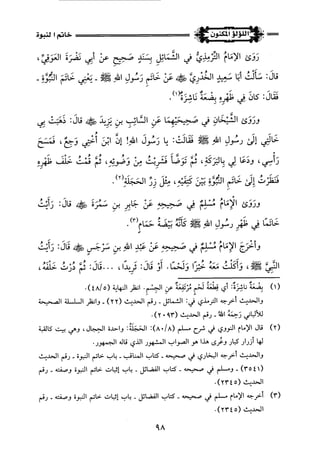 اللؤلؤ المكنون
خاتم النبوة
رَوَى الإِمَامُ التِّرْمِذِيُّ فِي الشَّمَائِلِ بِسَنَدٍ صَحِيحٍ عَنْ أَبِي نَضْرَةَ العَوَقِيِّ،
قَالَ: سَأَلْتُ أَبَا سَعِيدٍ الخُدْرِيَّ ﷺ عَنْ خَاتَمِ رَسُولِ اللهِ ﷺ - يَعْنِي خَاتَمَ النُّبُوَّةِ -
فَقَالَ: كَانَ فِي ظَهْرِهِ بِضْعَةٌ نَاشِزَةٌ(١).
ورَوَى الشَّيْخَانِ فِي صَحِيحَيْهِمَا عَنِ السَّائِبِ بنِ يَزِيدَ قَالَ: ذَهَبَتْ بِي
خَالَتِي إِلَى رَسُولِ اللهِ ﷺ فَقَالَتْ: يا رَسُولَ اللهِ! إِنَّ ابْنَ أُخْتِي وَجِعٌ، فَمَسَحَ
رَأْسِي، ودَعَا لِي بِالبَرَكَةِ، ثُمَّ تَوَضَّأَ فَشَرِبْتُ مِنْ وَضُوئِهِ، ثُمَّ قُمْتُ خَلْفَ ظَهْرِهِ
فَنَظَرْتُ إِلَى خَاتَمِ النُّبُوَّةِ بَيْنَ كَتِفَيْهِ، مِثْلَ زِرِّ الحَجَلَةِ(٢).
ورَوَى الإِمَامُ مُسْلِمٌ فِي صَحِيحِهِ عَنْ جَابِرِ بنِ سَمُرَةَ قَالَ: رَأَيْتُ
خَاتَمًا فِي ظَهْرِ رسولِ اللهِ ﷺ كَأَنَّهُ بَيْضَةُ حَمَامٍ(٣).
وأخْرَجَ الإِمَامُ مُسْلِمٌ فِي صَحِيحِهِ عَنْ عَبْدِ اللهِ بنِ سَرْجَسٍ قَالَ: رَأَيْتُ
النَّبِيَّ ﷺ، وأَكَلْتُ مَعَهُ خُبْزًا ولَحْمًا، أَوْ قَالَ: ثَرِيدًا، ...قَالَ: ثُمَّ دُرْتُ خَلْفَهُ،
(١) بِضْعَةٌ نَاشِزَةٌ: أي قِطْعَةُ لَحْمٍ مُرْتَفِعَةٌ عن الجِسْمِ. انظر النهاية (٤٨/٥).
والحديث أخرجه الترمذي في: الشمائل - رقم الحديث (٢٢) - وانظر السلسلة الصحيحة
للألباني رَحِمَهُ اللهُ - رقم الحديث (٢٠٩٣).
(٢) قال الإمام النووي في شرح مسلم (٨٠/٨): الحَجَلَةُ: واحدة الحِجال، وهي بيت كالقبة
لها أزرار كبار وعُرى هذا هو الصواب المشهور الذي قاله الجمهور.
والحديث أخرجه البخاري في صحيحه - كتاب المناقب - باب خاتم النبوة - رقم الحديث
(٣٥٤١) - ومسلم في صحيحه - كتاب الفضائل - باب إثبات خاتم النبوة وصفته - رقم
الحديث (٢٣٤٥).
(٣) أخرجه الإمام مسلم في صحيحه - كتاب الفضائل - باب إثبات خاتم النبوة وصفته - رقم
الحديث (٢٣٤٥).
٩٨